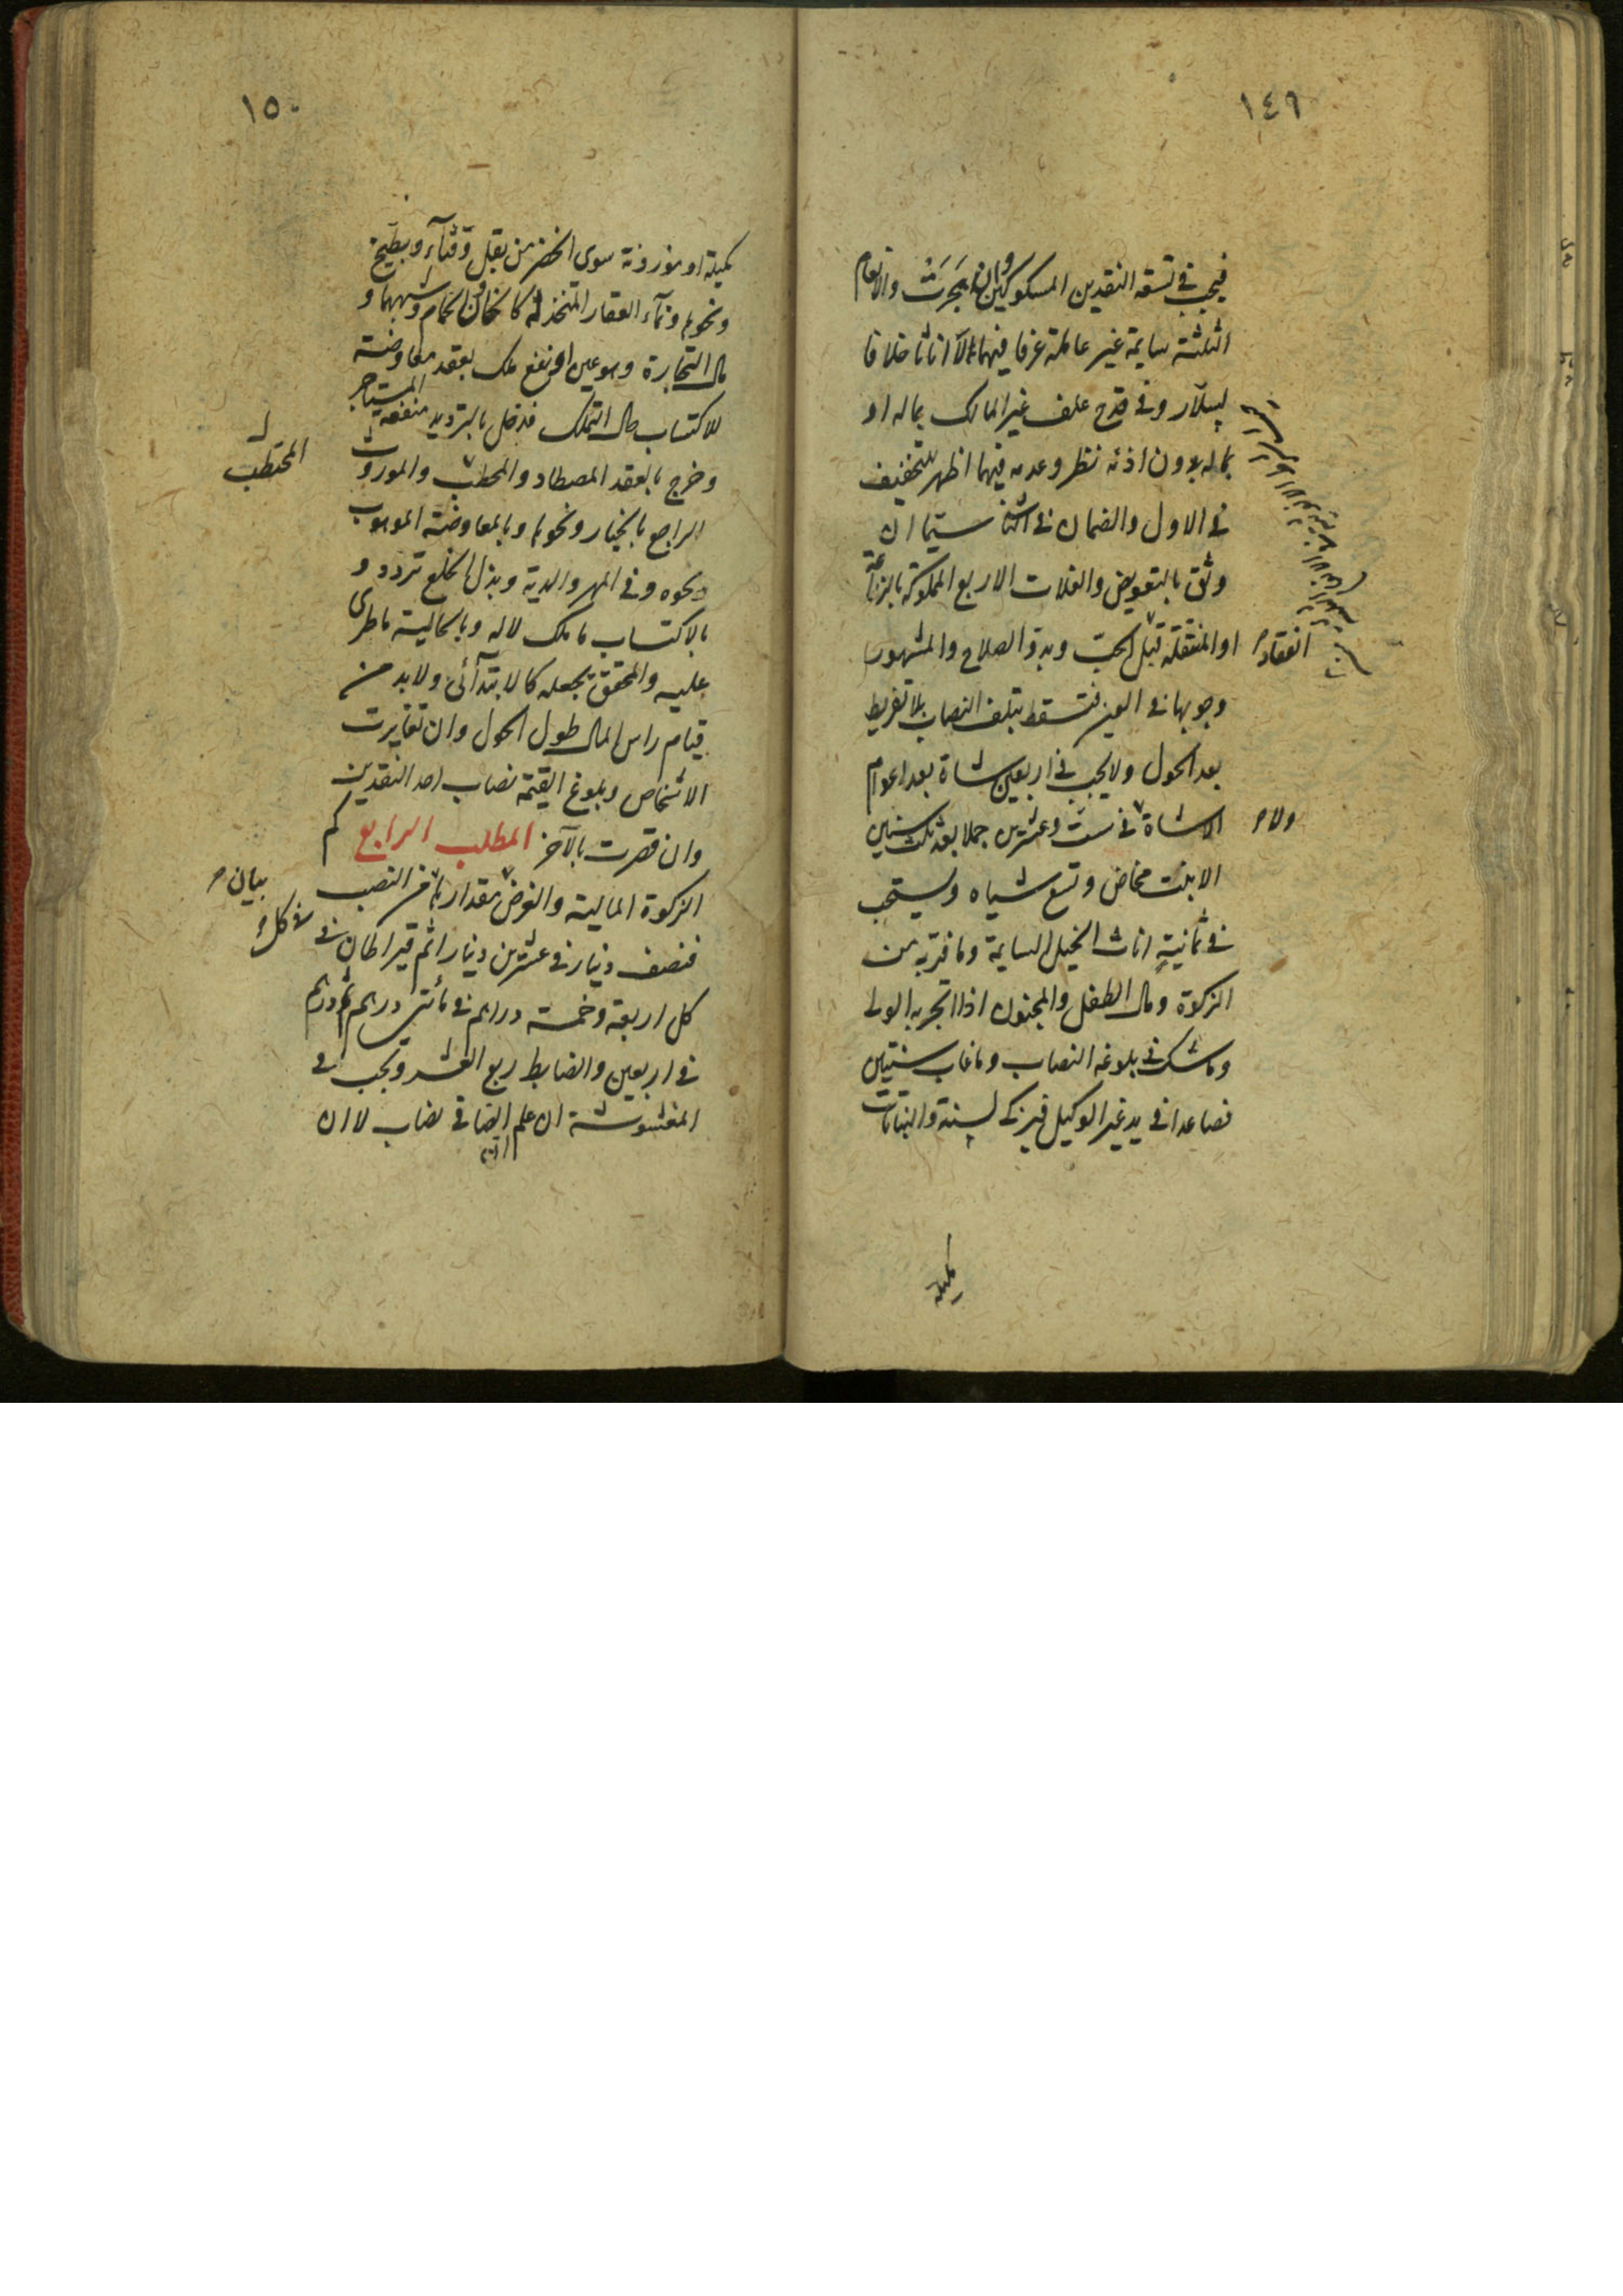 ١٤٩
فيجب في تسعة النقدين المسكوكين وان هجرت والانعام
الثلثة سايمة غير عاملة عرفا فيهما لا اناثا خلافا
لسلار وفي قدح علف غير المالك بماله او
بماله بدون اذنه نظر وعدمه فيهما اظهر للتخفيف
في الاول والضمان في الثاني سيما ان
وثق بالتعويض والغلات الاربع المملوكة بالزراعة
او المنتقلة قبل انعقاد الحب وبدو الصلاح والمشهور
وجوبها في العين فتسقط بتلف النصاب بلا تفريط
بعد الحول ولا يجب في اربعين شاة بعد اعوام
الا شاة ولا في ست وعشرين جملا بعد ثلث سنين
الا بنت مخاض وتسع شياه ويستحب
في ثمانية اناث الخيل السايمة وما فر به من
الزكوة ومال الطفل والمجنون اذا اتجر به الولي
وما شك في بلوغه النصاب وما غاب سنتين
فصاعدا في يد غير الوكيل فيزكى لسنة والنباتات
كميلة
١٥٠
كميلة او موزونة سوى الخضر من بقل وقثآء وبطيخ
ونحوها ونمآء العقار المتخذ له كالخان والحمام وشبههما و
مال التجارة وهو عين او نفع ملك بعقد معاوضة
للاكتساب حال التملك فدخل بالترديد منفعة المستاجر
وخرج بالعقد المصطاد والمحطب والموروث
المحتطب
الراجع بالخيار ونحوها وبالمعاوضة الموهوب
ونحوه وفي المهر والدية وبذل الخلع تردد و
بالاكتساب ما ملك لا له وبالحالية ما طرى
عليه والمحقق يجعله كالابتدآئى ولا بد من
قيام راس المال طول الحول وان تغايرت
الاشخاص وبلوغ القيمة نصاب احد النقدين
وان قصرت بالآخر المطلب الرابع كم
الزكوة المالية والغرض بيان مقدار ما في النصب
فنصف دينار في عشرين دينارا ثم قيراطان في
كل اربعة وخمسة دراهم في مأتي درهم ثم درهم
في اربعين والضابط ربع العشر وتجب في
المغشوشة ان علم الصافي نصاب لا ان